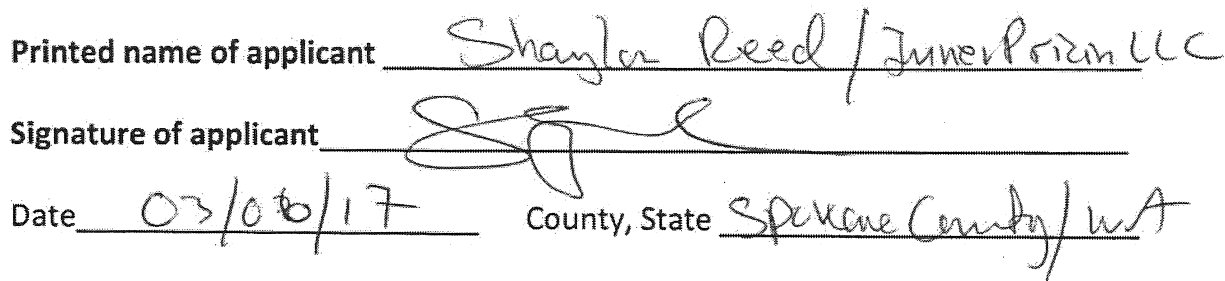 Printed name of applicant Shaylon Reed / InnerPrizm LLC
Signature of applicant
Date 03/06/17 County, State Spokane County / WA